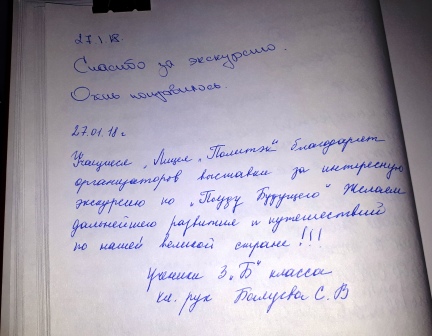 27.1.18.
Спасибо за экскурсию.
Очень понравилось.
27.01.18 г
Учащиеся „Лицея „Политэк" благодарят
организаторов выставки за интересную
экскурсию по „Поезду Будущего" Желаем
дальнейшего развития и путешествий
по нашей великой стране!!!
Ученики 3„Б" класса
кл. рук С. В